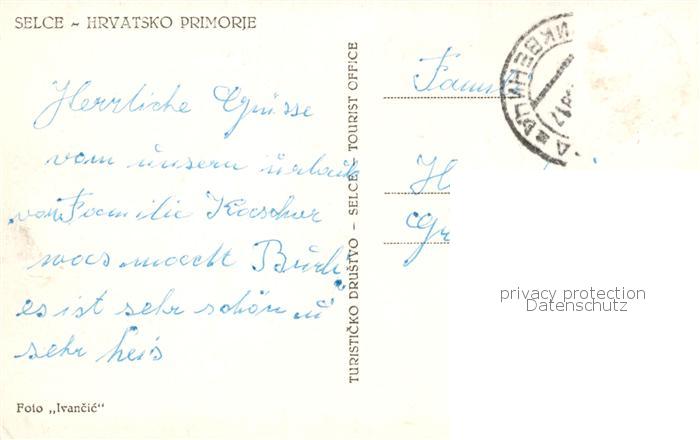 SELCE ~ HRVATSKO PRIMORJE
Herrliche Grüsse
vom unsern Urlaub
von Familie Kascher
was macht
es ist sehr schön u
sehr heis
Foto „Ivančić“
TURISTIČKO DRUŠTVO – SELCE – TOURIST OFFICE
Fam
H
Gr
privacy protection
Datenschutz